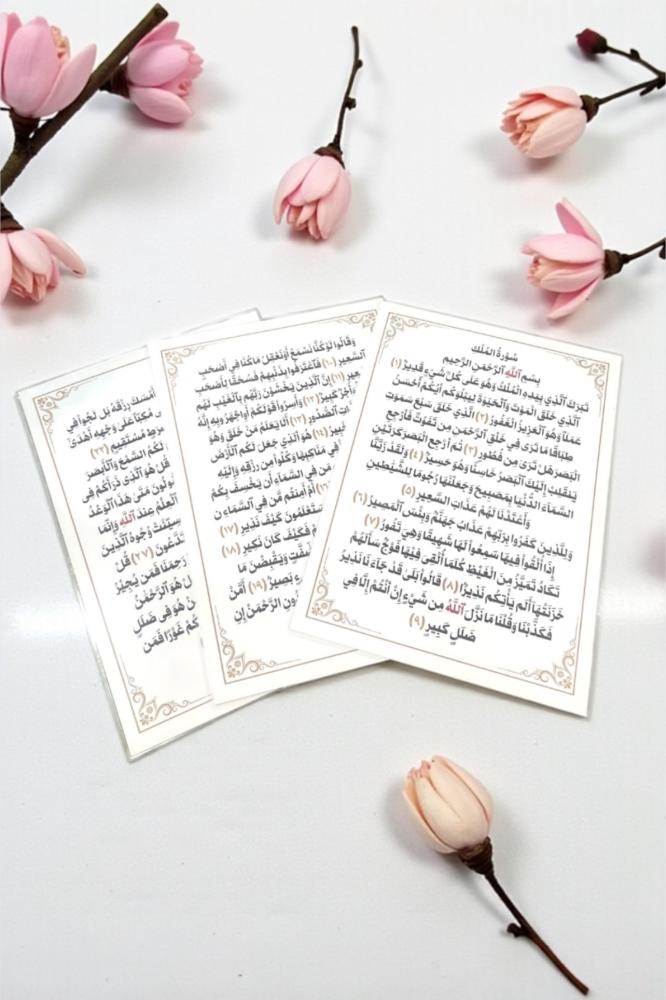 سُورَةُ المُلْك
بِسْمِ اللَّهِ الرَّحْمَٰنِ الرَّحِيمِ
تَبَٰرَكَ ٱلَّذِي بِيَدِهِ ٱلْمُلْكُ وَهُوَ عَلَىٰ كُلِّ شَيْءٍ قَدِيرٌ (١)
ٱلَّذِي خَلَقَ ٱلْمَوْتَ وَٱلْحَيَوٰةَ لِيَبْلُوَكُمْ أَيُّكُمْ أَحْسَنُ
عَمَلًا وَهُوَ ٱلْعَزِيزُ ٱلْغَفُورُ (٢) ٱلَّذِي خَلَقَ سَبْعَ سَمَٰوَٰتٍ
طِبَاقًا مَّا تَرَىٰ فِي خَلْقِ ٱلرَّحْمَٰنِ مِن تَفَٰوُتٍ فَٱرْجِعِ
ٱلْبَصَرَ هَلْ تَرَىٰ مِن فُطُورٍ (٣) ثُمَّ ٱرْجِعِ ٱلْبَصَرَ كَرَّتَيْنِ
يَنقَلِبْ إِلَيْكَ ٱلْبَصَرُ خَاسِئًا وَهُوَ حَسِيرٌ (٤) وَلَقَدْ زَيَّنَّا
ٱلسَّمَآءَ ٱلدُّنْيَا بِمَصَٰبِيحَ وَجَعَلْنَٰهَا رُجُومًا لِّلشَّيَٰطِينِ
وَأَعْتَدْنَا لَهُمْ عَذَابَ ٱلسَّعِيرِ (٥)
وَلِلَّذِينَ كَفَرُوا بِرَبِّهِمْ عَذَابُ جَهَنَّمَ وَبِئْسَ ٱلْمَصِيرُ (٦)
إِذَآ أُلْقُوا فِيهَا سَمِعُوا لَهَا شَهِيقًا وَهِيَ تَفُورُ (٧)
تَكَادُ تَمَيَّزُ مِنَ ٱلْغَيْظِ كُلَّمَآ أُلْقِيَ فِيهَا فَوْجٌ سَأَلَهُمْ
خَزَنَتُهَآ أَلَمْ يَأْتِكُمْ نَذِيرٌ (٨) قَالُوا بَلَىٰ قَدْ جَآءَنَا نَذِيرٌ
فَكَذَّبْنَا وَقُلْنَا مَا نَزَّلَ ٱللَّهُ مِن شَيْءٍ إِنْ أَنتُمْ إِلَّا فِي
ضَلَٰلٍ كَبِيرٍ (٩)
وَقَالُوا لَوْ كُنَّا نَسْمَعُ أَوْ نَعْقِلُ مَا كُنَّا فِي أَصْحَٰبِ
ٱلسَّعِيرِ (١٠) فَٱعْتَرَفُوا بِذَنۢبِهِمْ فَسُحْقًا لِّأَصْحَٰبِ
(١١) إِنَّ ٱلَّذِينَ يَخْشَوْنَ رَبَّهُم بِٱلْغَيْبِ لَهُم
كَبِيرٌ (١٢) وَأَسِرُّوا قَوْلَكُمْ أَوِ ٱجْهَرُوا بِهِ إِنَّهُ
ٱلصُّدُورِ (١٣) أَلَا يَعْلَمُ مَنْ خَلَقَ وَهُوَ
(١٤) هُوَ ٱلَّذِي جَعَلَ لَكُمُ ٱلْأَرْضَ
فِي مَنَاكِبِهَا وَكُلُوا مِن رِّزْقِهِ وَإِلَيْهِ
مَّن فِي ٱلسَّمَآءِ أَن يَخْسِفَ بِكُمُ
أَمْ أَمِنتُم مَّن فِي ٱلسَّمَآءِ
فَسَتَعْلَمُونَ كَيْفَ نَذِيرِ (١٧)
فَكَيْفَ كَانَ نَكِيرِ (١٨)
صَٰٓفَّٰتٍ وَيَقْبِضْنَ مَا
بَصِيرٌ (١٩) أَمَّنْ
ٱلرَّحْمَٰنِ إِنِ
أَمْسَكَ رِزْقَهُ بَل لَّجُّوا فِي
مُكِبًّا عَلَىٰ وَجْهِهِ أَهْدَىٰ
مُّسْتَقِيمٍ (٢٢)
لَكُمُ ٱلسَّمْعَ وَٱلْأَبْصَٰرَ
قُلْ هُوَ ٱلَّذِي ذَرَأَكُمْ فِي
مَتَىٰ هَٰذَا ٱلْوَعْدُ
ٱلْعِلْمُ عِندَ ٱللَّهِ وَإِنَّمَآ
وُجُوهُ ٱلَّذِينَ
(٢٧) قُلْ
رَحِمَنَا فَمَن يُجِيرُ
هُوَ ٱلرَّحْمَٰنُ
هُوَ فِي ضَلَٰلٍ
غَوْرًا فَمَن